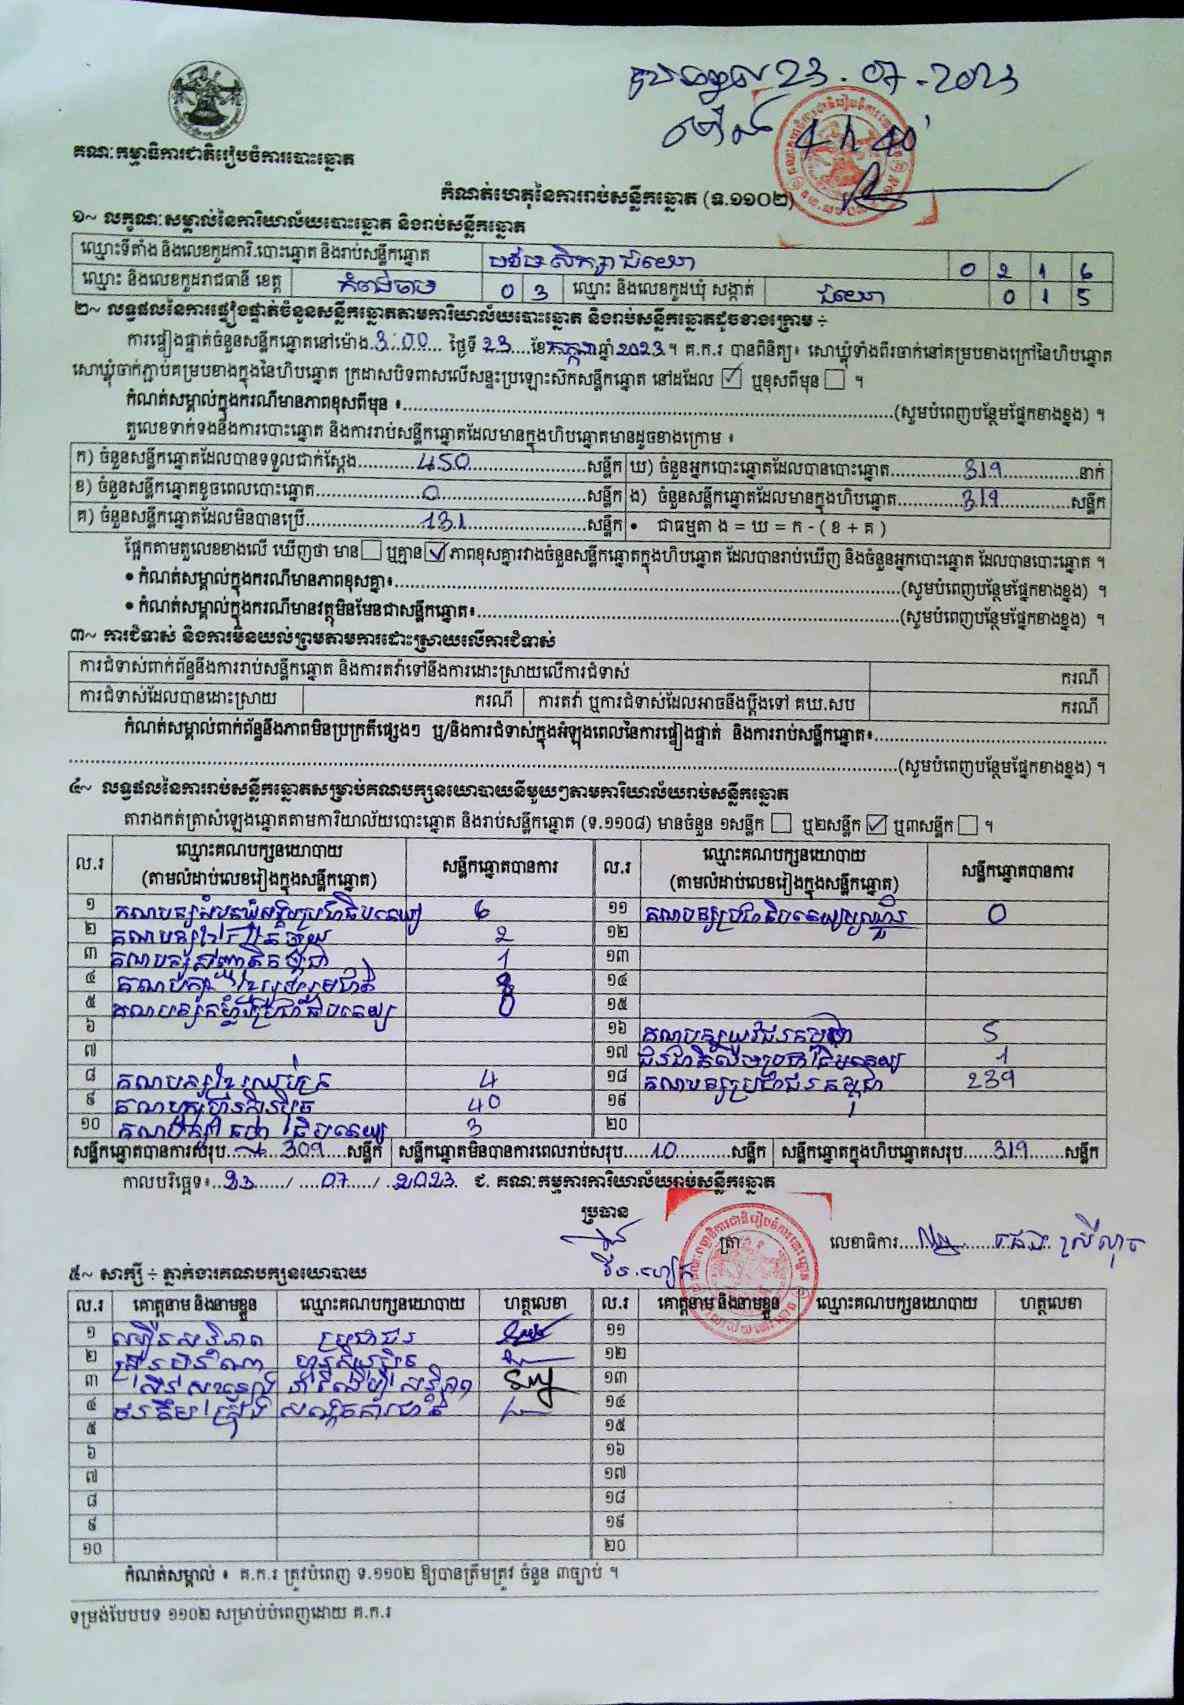 ទទួល 23.07-2023
ម៉ោង 4h 40'
គណៈកម្មាធិការជាតិរៀបចំការបោះឆ្នោត
កំណត់ហេតុនៃការរាប់សន្លឹកឆ្នោត (ទ.១១០២)
១~ លក្ខណៈសម្គាល់នៃការិយាល័យបោះឆ្នោត និងរាប់សន្លឹកឆ្នោត
ឈ្មោះទីតាំង និងលេខកូដការិ.បោះឆ្នោត និងរាប់សន្លឹកឆ្នោត បឋមសិក្សា ជយោ 0 2 1 6
ឈ្មោះ និងលេខកូដរាជធានី ខេត្ត កំពង់ចាម 0 3 ឈ្មោះ និងលេខកូដឃុំ សង្កាត់ ជយោ 0 1 5
២~ លទ្ធផលនៃការផ្ទៀងផ្ទាត់ចំនួនសន្លឹកឆ្នោតតាមការិយាល័យបោះឆ្នោត និងរាប់សន្លឹកឆ្នោតដូចខាងក្រោម ÷
ការផ្ទៀងផ្ទាត់ចំនួនសន្លឹកឆ្នោតនៅម៉ោង 3:00 ថ្ងៃទី 23 ខែ កក្កដា ឆ្នាំ 2023។ គ.ក.រ បានពិនិត្យ៖ សោឃ្លុំទាំងពីរចាក់នៅគម្របខាងក្រៅនៃហិបឆ្នោត
សោឃ្លុំចាក់ភ្ជាប់គម្របខាងក្នុងនៃហិបឆ្នោត ក្រដាសបិទពាសលើសន្ទះប្រឡោះស៊កសន្លឹកឆ្នោត នៅដដែល ☑ ឬខុសពីមុន ☐ ។
កំណត់សម្គាល់ក្នុងករណីមានភាពខុសពីមុន ៖ (សូមបំពេញបន្ថែមផ្នែកខាងខ្នង) ។
តួលេខទាក់ទងនឹងការបោះឆ្នោត និងការរាប់សន្លឹកឆ្នោតដែលមានក្នុងហិបឆ្នោតមានដូចខាងក្រោម ៖
ក) ចំនួនសន្លឹកឆ្នោតដែលបានទទួលជាក់ស្តែង 450 សន្លឹក ឃ) ចំនួនអ្នកបោះឆ្នោតដែលបានបោះឆ្នោត 319 នាក់
ខ) ចំនួនសន្លឹកឆ្នោតខូចពេលបោះឆ្នោត 0 សន្លឹក ង) ចំនួនសន្លឹកឆ្នោតដែលមានក្នុងហិបឆ្នោត 319 សន្លឹក
គ) ចំនួនសន្លឹកឆ្នោតដែលមិនបានប្រើ 131 សន្លឹក • ជាធម្មតា ង = ឃ = ក - ( ខ + គ )
ផ្អែកតាមតួលេខខាងលើ ឃើញថា មាន ☐ ឬគ្មាន ☑ ភាពខុសគ្នារវាងចំនួនសន្លឹកឆ្នោតក្នុងហិបឆ្នោត ដែលបានរាប់ឃើញ និងចំនួនអ្នកបោះឆ្នោត ដែលបានបោះឆ្នោត ។
• កំណត់សម្គាល់ក្នុងករណីមានភាពខុសគ្នា៖ (សូមបំពេញបន្ថែមផ្នែកខាងខ្នង) ។
• កំណត់សម្គាល់ក្នុងករណីមានវត្ថុមិនមែនជាសន្លឹកឆ្នោត៖ (សូមបំពេញបន្ថែមផ្នែកខាងខ្នង) ។
៣~ ការជំទាស់ និងការមិនយល់ព្រមតាមការដោះស្រាយលើការជំទាស់
ការជំទាស់ពាក់ព័ន្ធនឹងការរាប់សន្លឹកឆ្នោត និងការតវ៉ាទៅនឹងការដោះស្រាយលើការជំទាស់ ករណី
ការជំទាស់ដែលបានដោះស្រាយ ករណី ការតវ៉ា ឬការជំទាស់ដែលអាចនឹងប្តឹងទៅ គឃ.សប ករណី
កំណត់សម្គាល់ពាក់ព័ន្ធនឹងភាពមិនប្រក្រតីផ្សេងៗ ឬ/និងការជំទាស់ក្នុងអំឡុងពេលនៃការផ្ទៀងផ្ទាត់ និងការរាប់សន្លឹកឆ្នោត៖
(សូមបំពេញបន្ថែមផ្នែកខាងខ្នង) ។
៤~ លទ្ធផលនៃការរាប់សន្លឹកឆ្នោតសម្រាប់គណបក្សនយោបាយនីមួយៗតាមការិយាល័យរាប់សន្លឹកឆ្នោត
តារាងកត់ត្រាសំឡេងឆ្នោតតាមការិយាល័យបោះឆ្នោត និងរាប់សន្លឹកឆ្នោត (ទ.១១០៨) មានចំនួន ១សន្លឹក ☐ ឬ២សន្លឹក ☑ ឬ៣សន្លឹក ☐ ។
ល.រ ឈ្មោះគណបក្សនយោបាយ (តាមលំដាប់លេខរៀងក្នុងសន្លឹកឆ្នោត) សន្លឹកឆ្នោតបានការ ល.រ ឈ្មោះគណបក្សនយោបាយ (តាមលំដាប់លេខរៀងក្នុងសន្លឹកឆ្នោត) សន្លឹកឆ្នោតបានការ
១ គណបក្សសំបុកឃ្មុំសង្គមប្រជាធិបតេយ្យ 6 ១១ គណបក្សប្រជាធិបតេយ្យមូលដ្ឋាន 0
២ គណបក្ស 2 ១២
៣ គណបក្សសញ្ជាតិកម្ពុជា 1 ១៣
៤ គណបក្សខ្មែររួបរួមជាតិ 8 ១៤
៥ គណបក្សកម្លាំងប្រជាធិបតេយ្យ 0 ១៥
៦ ១៦ គណបក្សយុវជនកម្ពុជា 5
៧ ១៧ ជនជាតិដើមប្រជាធិបតេយ្យ 1
៨ គណបក្សខ្មែរឈប់ក្រ 4 ១៨ គណបក្សប្រជាជនកម្ពុជា 239
៩ គណបក្សហ៊្វុនស៊ិនប៉ិច 40 ១៩
១០ គណបក្ស ធិបតេយ្យ 3 ២០
សន្លឹកឆ្នោតបានការសរុប 309 សន្លឹក សន្លឹកឆ្នោតមិនបានការពេលរាប់សរុប 10 សន្លឹក សន្លឹកឆ្នោតក្នុងហិបឆ្នោតសរុប 319 សន្លឹក
កាលបរិច្ឆេទ៖ 23 / 07 / 2023 ជ. គណៈកម្មការការិយាល័យរាប់សន្លឹកឆ្នោត
ប្រធាន
ត្រា លេខាធិការ
៥~ សាក្សី ÷ ភ្នាក់ងារគណបក្សនយោបាយ
ល.រ គោត្តនាម និងនាមខ្លួន ឈ្មោះគណបក្សនយោបាយ ហត្ថលេខា ល.រ គោត្តនាម និងនាមខ្លួន ឈ្មោះគណបក្សនយោបាយ ហត្ថលេខា
១ ប្រជាជន ១១
២ ហ៊្វុនស៊ិនប៉ិច ១២
៣ ១៣
៤ ១៤
៥ ១៥
៦ ១៦
៧ ១៧
៨ ១៨
៩ ១៩
១០ ២០
កំណត់សម្គាល់ ៖ គ.ក.រ ត្រូវបំពេញ ទ.១១០២ ឱ្យបានត្រឹមត្រូវ ចំនួន ៣ច្បាប់ ។
ទម្រង់បែបបទ ១១០២ សម្រាប់បំពេញដោយ គ.ក.រ